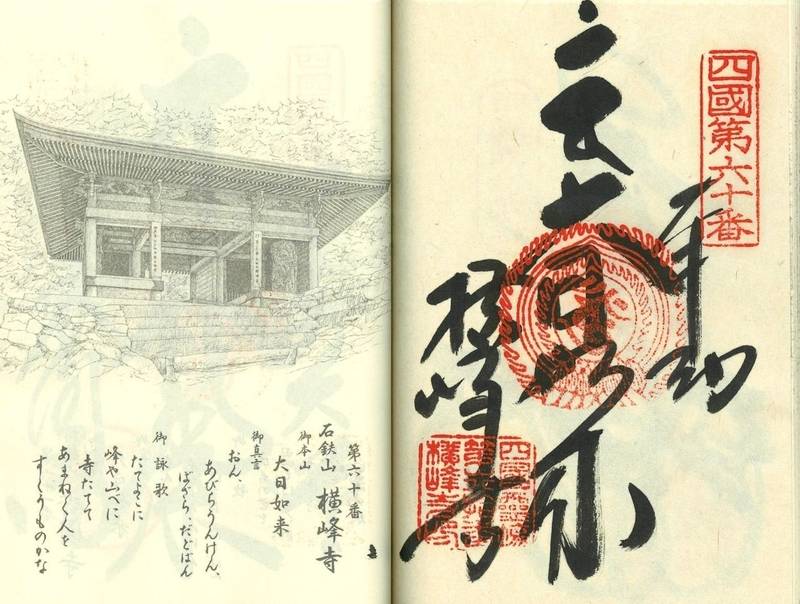 四國第六十番
奉納
大日如来
横峰寺
第六十番
石鉄山 横峰寺
御本尊
大日如来
御真言
おん、
あびらうんけん、
ばざら、だどばん
御詠歌
たてよこに
峰や山べに
寺たてて
あまねく人を
すくうものかな